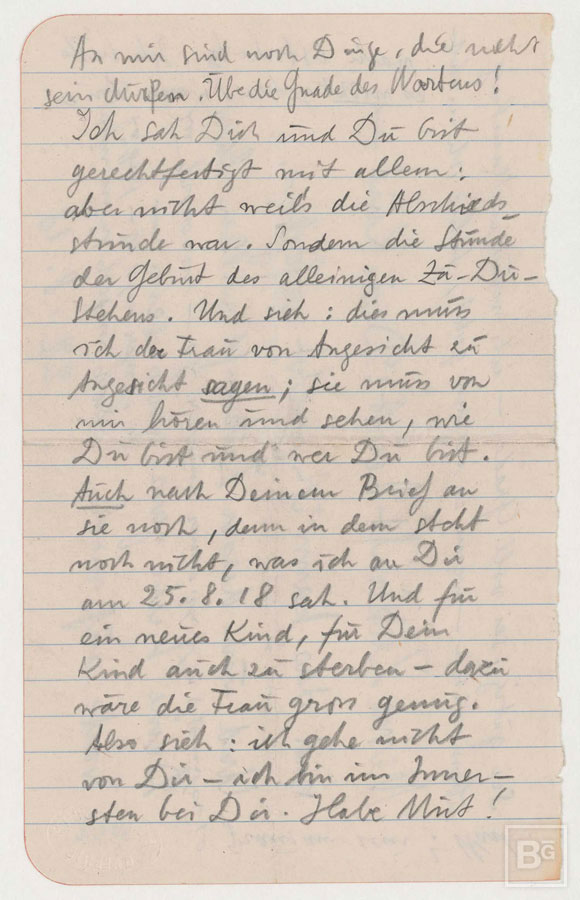 An mir sind noch Dinge, die nicht
sein dürfen. Übe die Gnade des Wartens!
Ich sah Dich und Du bist
gerechtfertigt mit allem:
aber nicht weil's die Abschieds
stunde war. Sondern die Stunde
der Geburt des alleinigen Zu-Dir-
Stehens. Und sieh: dies muss
ich der Frau von Angesicht zu
Angesicht sagen; sie muss von
mir hören und sehen, wie
Du bist und wer Du bist.
Auch nach Deinem Brief an
sie noch, denn in dem steht
noch nicht, was ich an Dir
am 25.8.18 sah. Und für
ein neues Kind, für Dein
Kind auch zu sterben – dazu
wäre die Frau gross genug.
Also sieh: ich gehe nicht
von Dir – ich bin im Inner-
sten bei Dir. Habe Mut!
BG